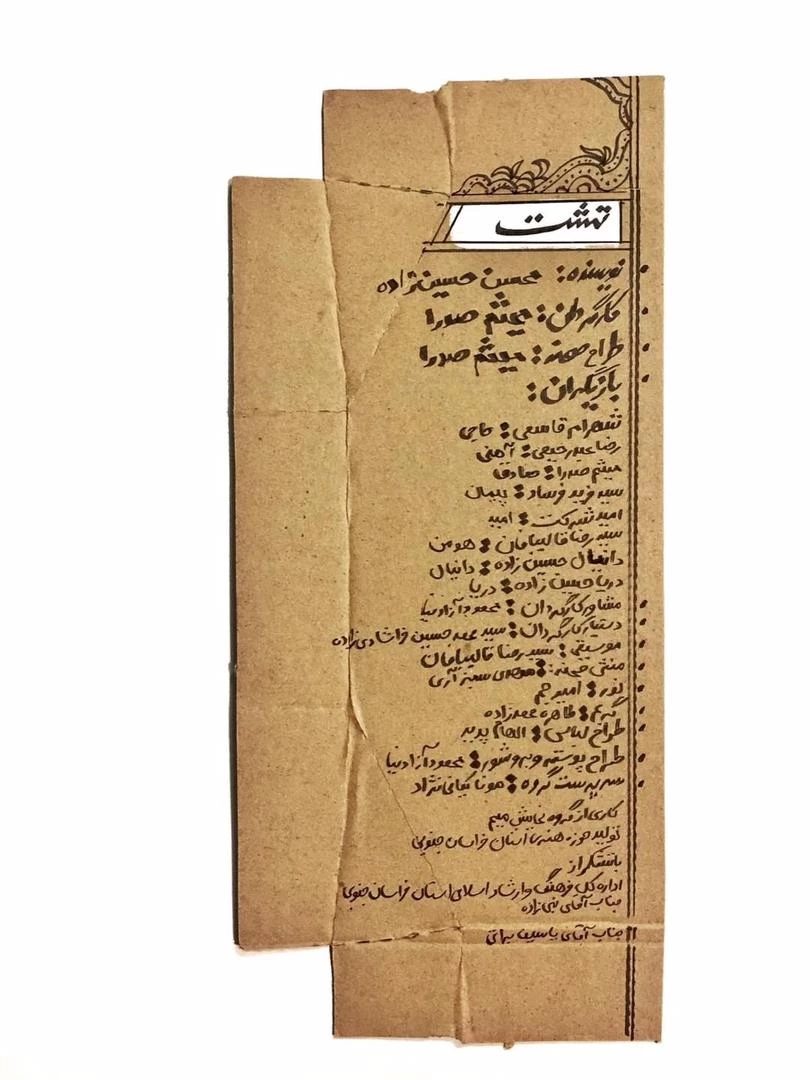 تشت
نویسنده: محسن حسین‌نژاده
کارگردان: میثم صدرا
طراح صحنه: میثم صدرا
بازیگران:
شهرام قاسمی: حاجی
رضا عیدرجبعی: آهنی
میثم صدرا: صادق
سید فرید فرساد: پیمان
امید شرکت: امید
سید رضا قالیبافان: هومن
دانیال حسین زاده: دانیال
دریا حسین زاده: دریا
مشاور کارگردان: محمود آزادنیا
دستیار کارگردان: سید محمد حسین خراشادی‌زاده
موسیقی: سید رضا قالیبافان
منشی صحنه: مهدی سبزآری
نور: امیر جم
گریم: طاهره محمدزاده
طراح لباس: الهام پدید
طراح پوستر و بروشور: محمود آزادنیا
سرپرست گروه: مونا کیانی‌نژاد
کاری از گروه نمایش میم
تولید حوزه هنری استان خراسان جنوبی
با تشکر از
اداره کل فرهنگ و ارشاد اسلامی استان خراسان جنوبی
جناب آقای نبی‌زاده
جناب آقای یاسین بیاتی